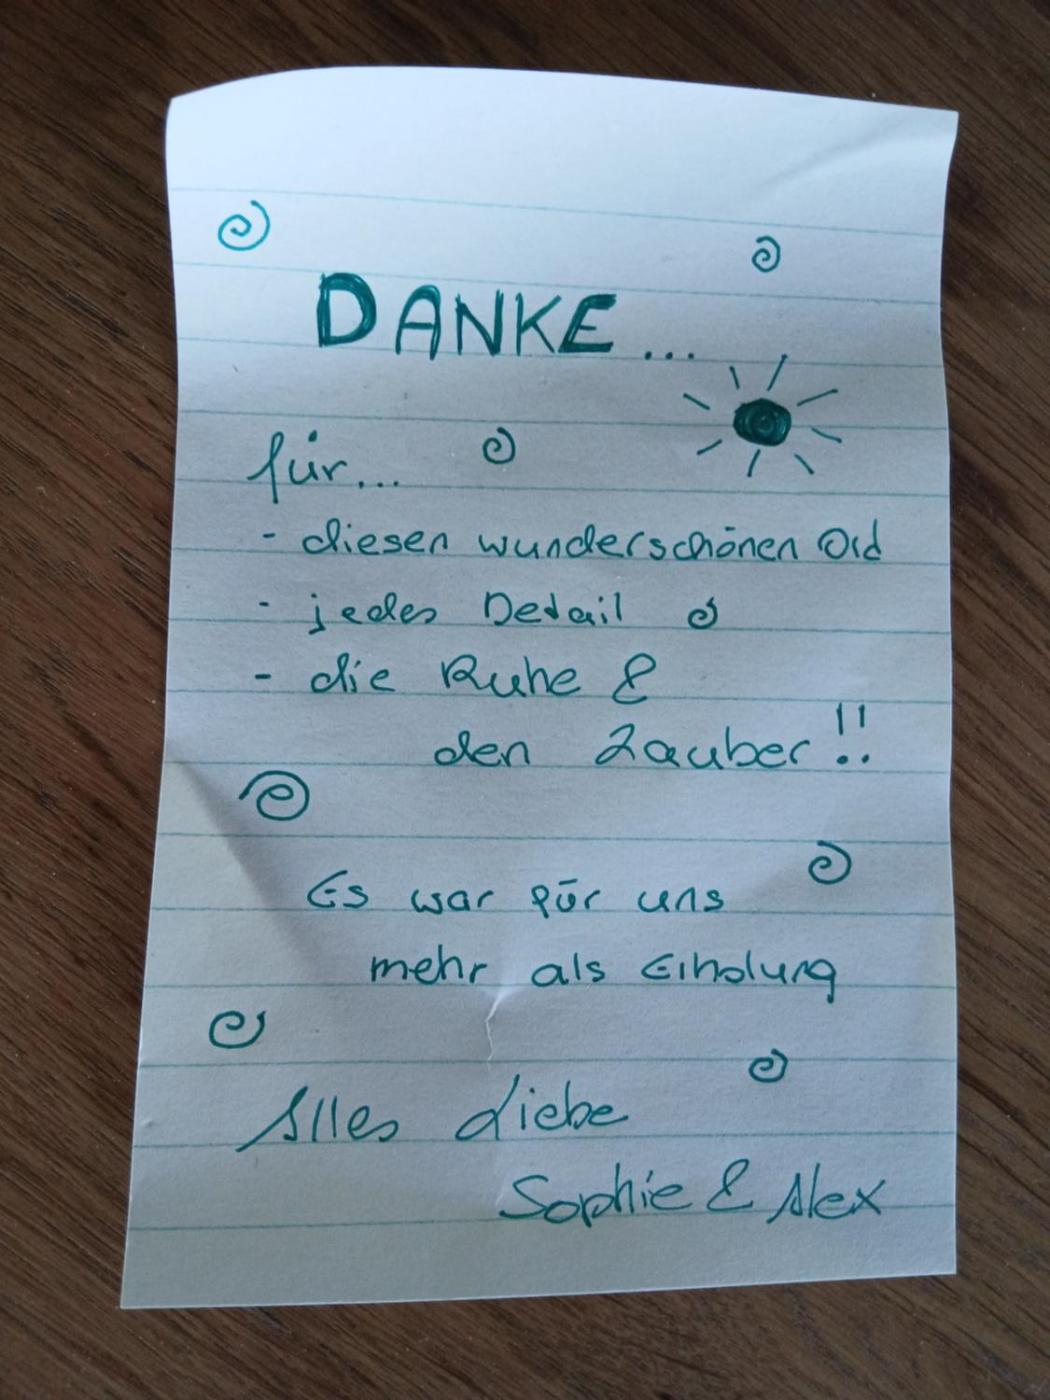 DANKE...
für...
- diesen wunderschönen Ort
- jedes Detail
- die Ruhe &
den Zauber!!
Es war für uns
mehr als Erholung
Alles Liebe
Sophie & Alex